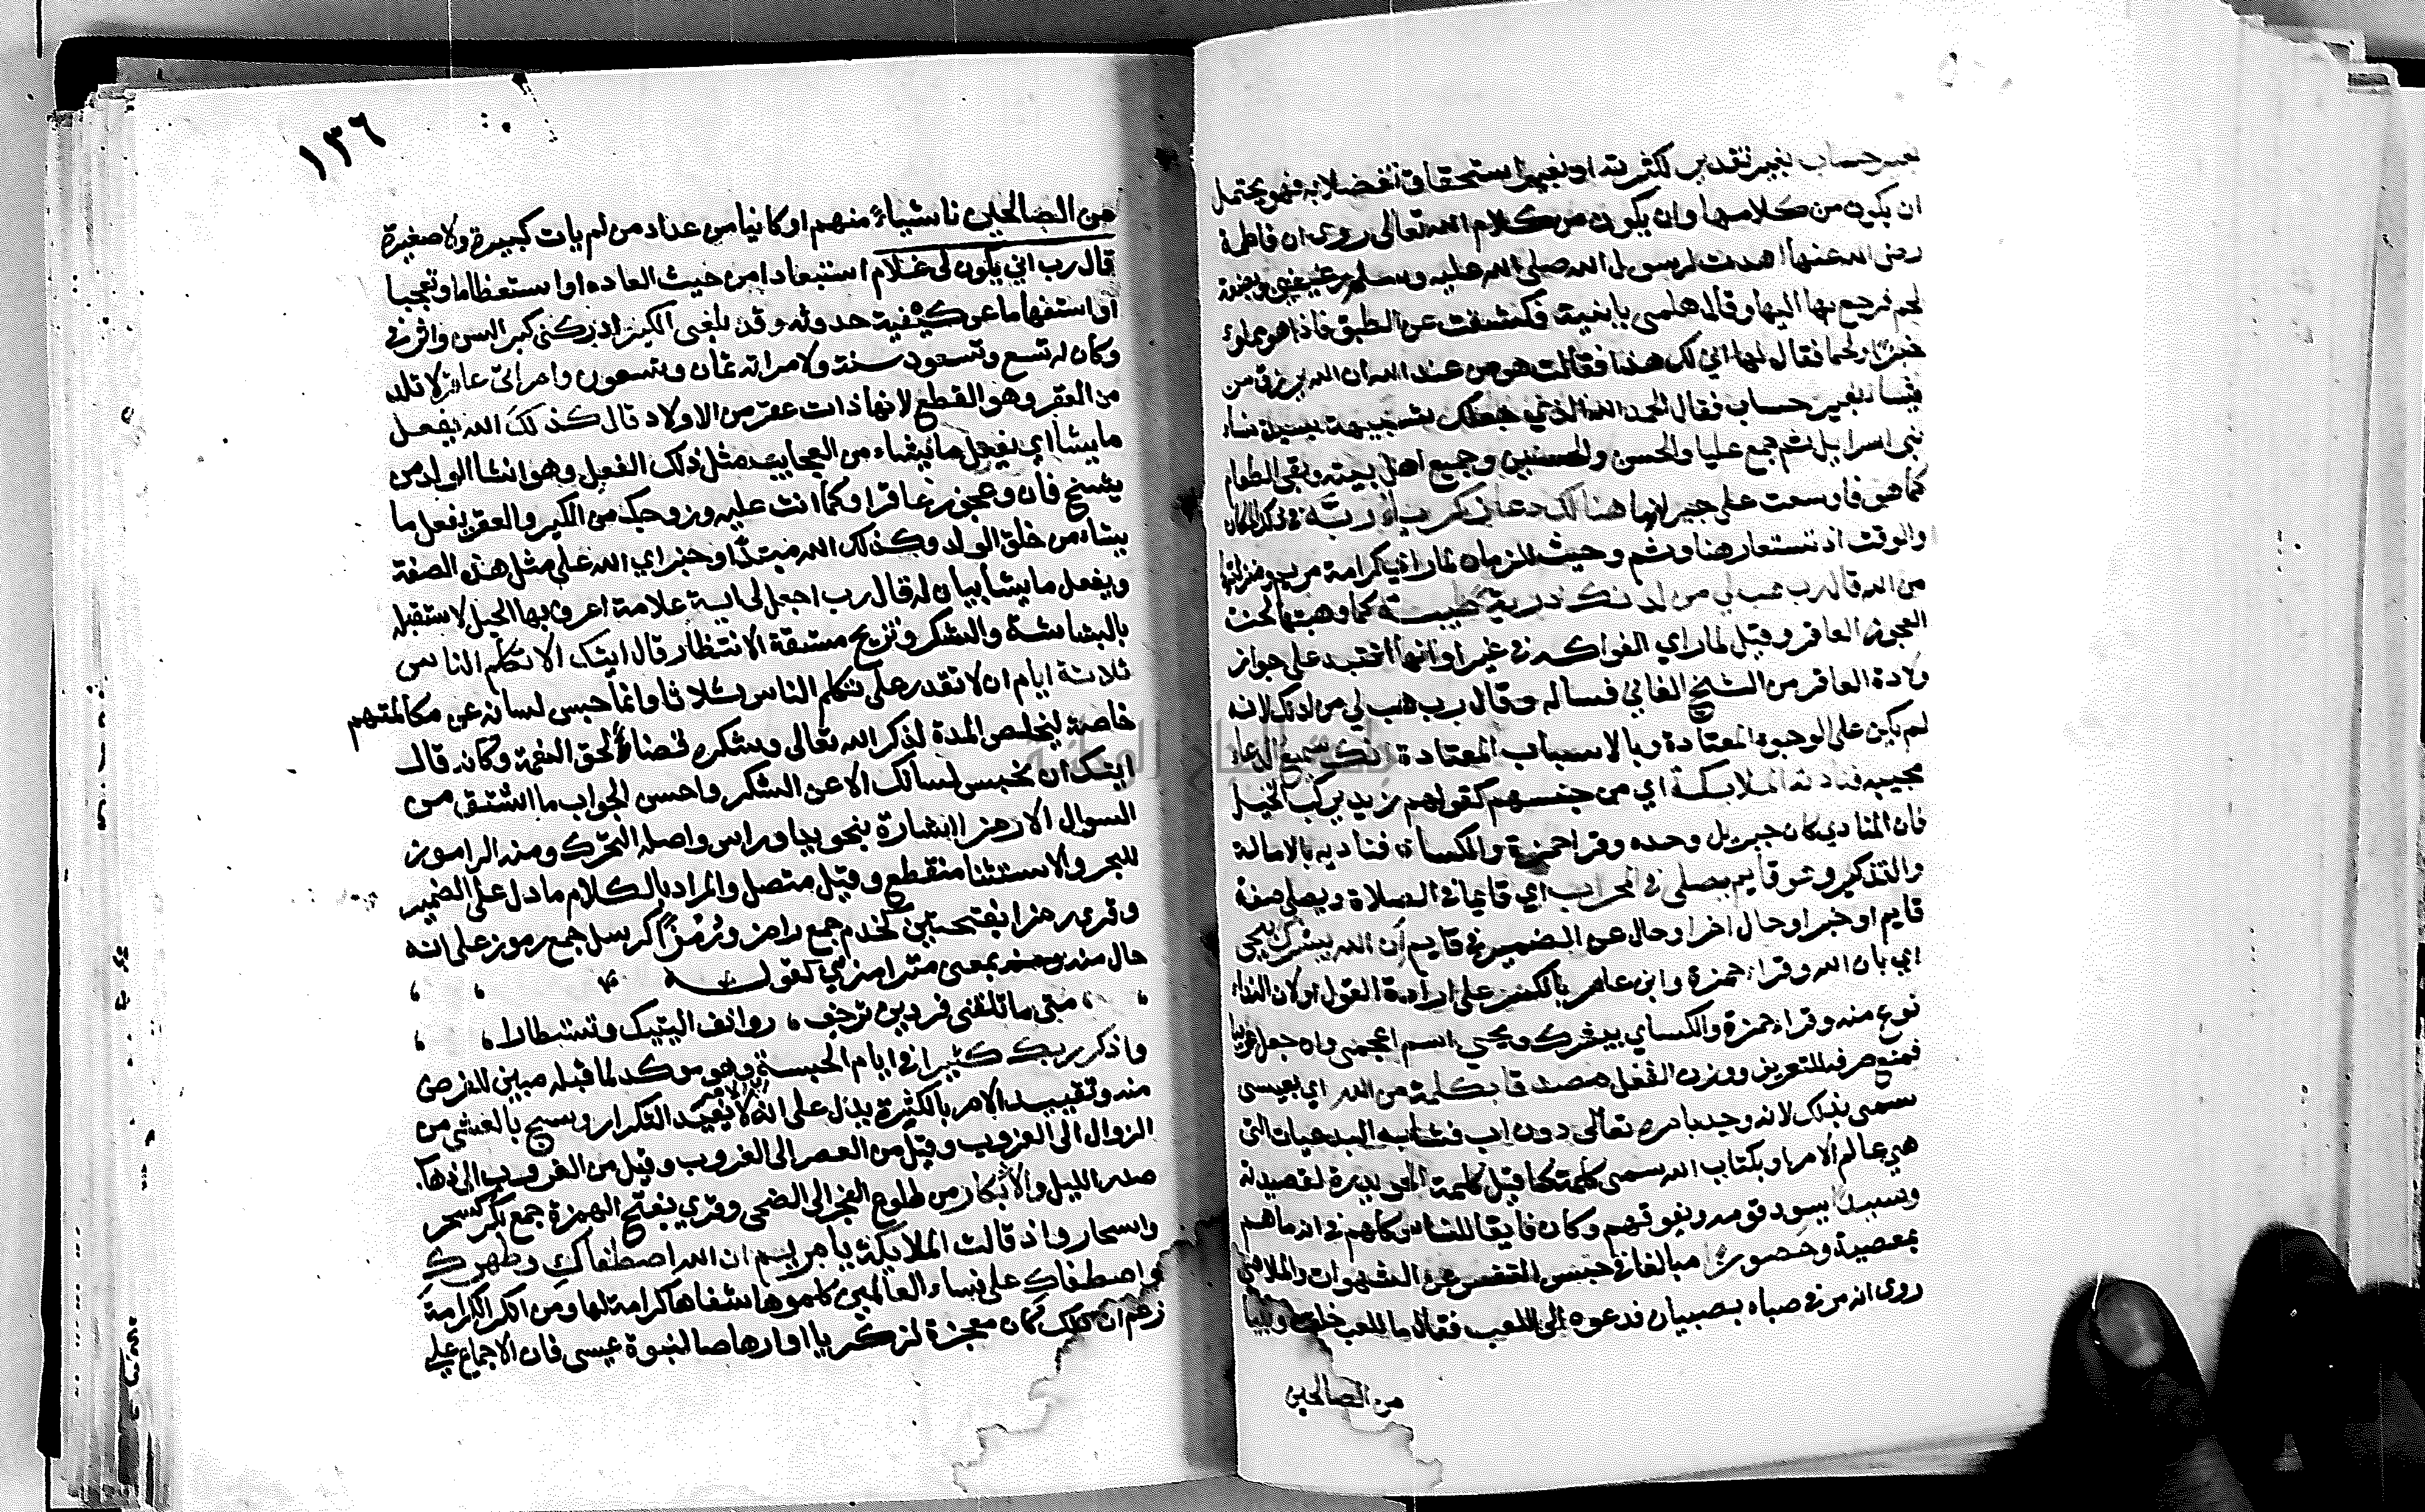 بغير حساب بغير تقدير لكثرته او بغير استحقاق تفضلا به فهو يحتمل
ان يكون من كلامها وان يكون من كلام الله تعالى روى ان فاطمة
رضى الله عنها اهدت لرسول الله صلى الله عليه وسلم رغيفين وبضعة
لحم فرجع بها اليها وقال هلمى يا بنية فكشفت عن الطبق فاذا هو مملوء
خبزا ولحما فقال لها انى لك هذا فقالت هو من عند الله ان الله يرزق من
يشا بغير حساب فقال الحمد لله الذي جعلك شبيهة بسيدة نساء
بنى اسرايل ثم جمع عليا والحسن والحسين وجميع اهل بيته وبقى الطعام
كما هو فاوسعت على جيرانها هنالك دعا زكريا ربه في ذلك المكان
والوقت اذ تستعار هنا وثم وحيث للزمان لما راى كرامة مريم ومنزلتها
من الله قال رب هب لي من لدنك ذرية طيبة كما وهبتها لحنة
العجوز العاقر وقيل لما راي الفواكه في غير اوانها انتبه على جواز
ولادة العاقر من الشيخ الفاني فساله وقال رب هب لي من لدنك لانه
لم يكن على الوجوه المعتادة وبالاسباب المعتادة انك سميع الدعاء
مجيبه فنادته الملايكة اي من جنسهم كقولهم زيد يركب الخيل
فان المنادي كان جبريل وحده وقرا حمزة والكساي فناديه بالامالة
والتذكير وهو قايم يصلى في المحراب اي قايما في الصلاة ويصلى صفة
قايم او خبر او حال اخر او حال عن الضمير في قايم ان الله يبشرك بيحيى
اي بان الله وقراء حمزة وابن عامر بالكسر على ارادة القول او لان النداء
نوع منه وقراء حمزة والكساي يبشرك ويحيى اسم اعجمى وان جعل عربيا
فمنع صرفه للتعريف ووزن الفعل مصدقا بكلمة من الله اي بعيسى
سمى بذلك لانه وجد بامره تعالى دون اب فشابه البدعيات التى
هي عالم الامر او بكتاب الله سمى كلمة كما قيل كلمة الحويدرة لقصيدته
وسيدا يسود قومه ويفوقهم وكان فايقا للناس كلهم في انه ما هم
بمعصية وحصورا مبالغا في حبس النفس عن الشهوات والملاهي
روى انه مر في صباه بصبيان فدعوه الى اللعب فقال ما للعب خلقت ونبيا
من الصالحين
١٣٦
من الصالحين ناشياءً منهم او كانيا من عداد من لم يات كبيرة ولا صغيرة
قال رب انى يكون لى غلام استبعادا من حيث العاده او استعظاما او تعجبا
او استفهاما عن كيفية حدوثه وقد بلغنى الكبر ادركنى كبر السن واثر في
وكان له تسع وتسعون سنة ولامراته ثمان وتسعون وامراتى عاقر لا تلد
من العقر وهو القطع لانها ذات عقر من الاولاد قال كذلك الله يفعل
ما يشا اي يفعل ما يشاء من العجايب مثل ذلك الفعل وهو انشا الولد من
شيخ فان وعجوز عاقر او كما انت عليه وزوجك من الكبر والعقر يفعل ما
يشاء من خلق الولد وكذلك الله مبتدا وخبر اي الله على مثل هذه الصفة
ويفعل ما يشا بيان له قال رب اجعل لى اية علامة اعرف بها الحبل لاستقبله
بالبشاشة والشكر وتزيح مشقة الانتظار قال ايتك الا تكلم الناس
ثلاثة ايام ان لا تقدر على تكلم الناس ثلاثا وانما حبس لسانه عن مكالمتهم
خاصة ليخلص المدة لذكر الله تعالى وشكره قضاءً لحق النعمة وكانه قال
ايتك ان تحبس لسانك الا عن الشكر واحسن الجواب ما اشتق من
السوال الا رمزا اشارة بنحو يد او راس واصله التحرك ومنه الراموز
للبحر والاستثنا منقطع وقيل متصل والمراد بالكلام ما دل على الضمير
وقرى رمزا بفتحتين كخدم جمع رامز ورُمُزا كرسل جمع رموز على انه
حال منه بمعنى مترامزين كقوله
متى ما تلقنى فردين ترجف ، روانف اليتيك وتستطارا
واذكر ربك كثيرا في ايام الحبسة وهو موكد لما قبله مبين للغرض
منه وتقييد الامر بالكثرة يدل على انه لا يفيد التكرار وسبح بالعشى من
الزوال الى الغروب وقيل من العصر الى الغروب وقيل من الغروب الى ذهاب
صدر الليل والابكار من طلوع الفجر الى الضحى وقرى بفتح الهمزة جمع بكر كسحر
واسحار واذ قالت الملايكة يا مريم ان الله اصطفاك وطهرك
واصطفاك على نساء العالمين كلموها شفاها كرامة لها ومن انكر الكرامة
زعم ان ذلك كان معجزة لزكريا او ارهاصا لنبوة عيسى فان الاجماع على